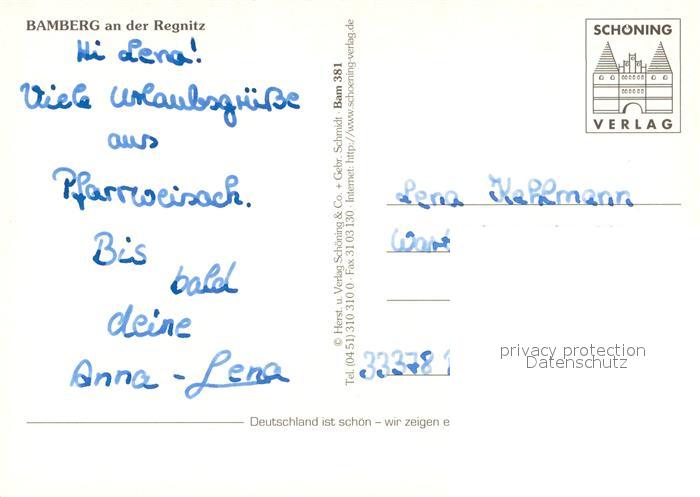 BAMBERG an der Regnitz
Hi Lena!
Viele Urlaubsgrüße
aus
Pfarrweisach.
Bis
bald
deine
Anna - Lena
© Herst. u. Verlag Schöning & Co. + Gebr. Schmidt · Bam 381
Tel. (04 51) 310 310 0 · Fax 31 03 130 · Internet: http://www.schoening-verlag.de
SCHÖNING
VERLAG
Lena Kahlmann
33378
privacy protection
Datenschutz
Deutschland ist schön – wir zeigen e